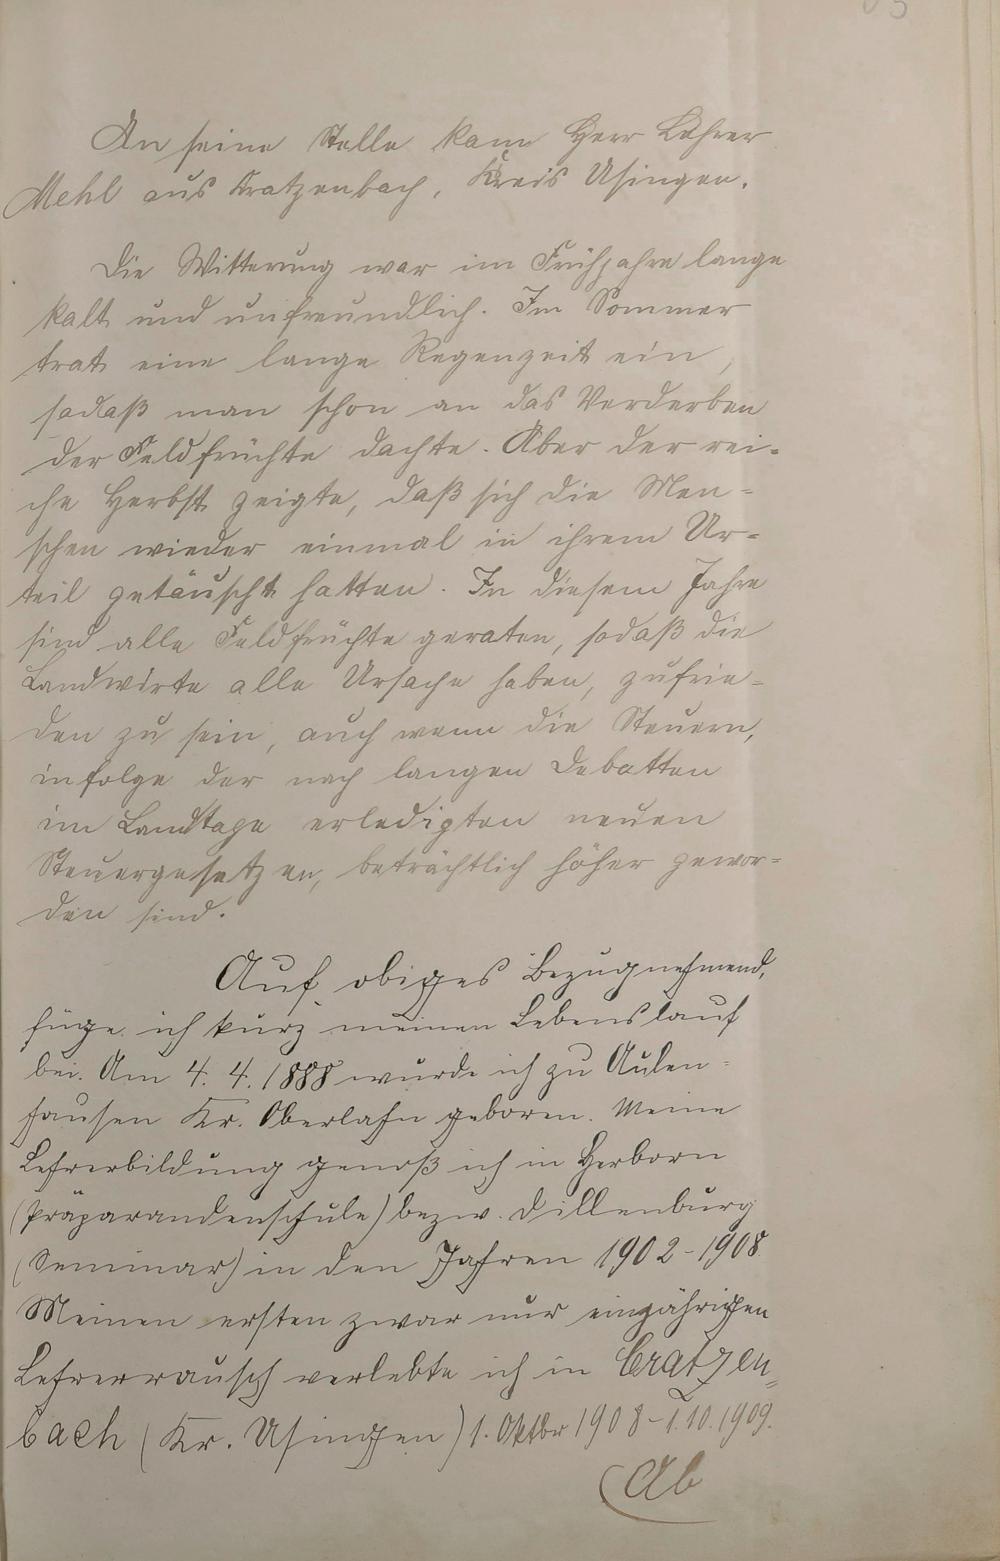 An seine Stelle kam Herr Lehrer
Mehl aus Kratzenbach, Kreis Usingen.
Die Witterung war im Frühjahre lange
kalt und unfreundlich. Im Sommer
trat eine lange Regenzeit ein,
sodaß man schon an das Verderben
der Feldfrüchte dachte. Aber der rei-
che Herbst zeigte, daß sich die Men-
schen wieder einmal in ihrem Ur-
teil getäuscht hatten. In diesem Jahre
sind alle Feldfrüchte geraten, sodaß die
Landwirte alle Ursache haben, zufrie-
den zu sein, auch wenn die Steuern,
infolge der nach langen Debatten
im Landtage erledigten neuen
Steuergesetzen, beträchtlich höher gewor-
den sind.
Auf obiges Bezugnehmend,
füge ich kurz meinen Lebenslauf
bei. Am 4. 4. 1888 wurde ich zu Aulen-
hausen Kr. Oberlahn geboren. Meine
Lehrerbildung genoß ich in Herborn
(Präparandenschule) bezw. Dillenburg
(Seminar) in den Jahren 1902-1908
Meinen ersten zwar nur einjährigen
Lehrerrausch verlebte ich in Cratzen-
bach (Kr. Usingen) 1. Oktbr 1908-1.10.1909.
Ab